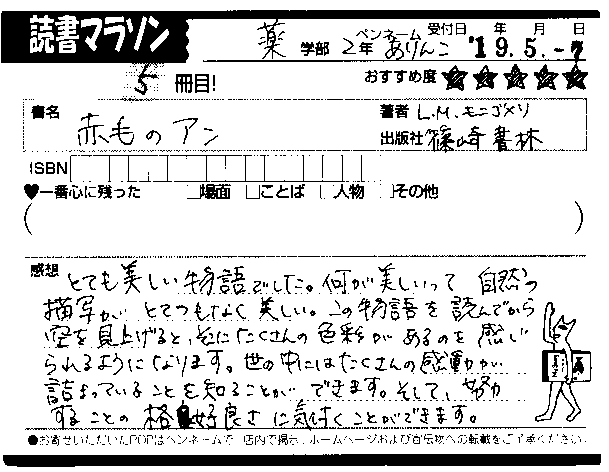 読書マラソン
薬 学部 2年 ペンネーム ありんこ 受付日 年 月 日 '19.5.-7
5 冊目!
おすすめ度 ★★★★★
書名 赤毛のアン
著者 L.M.モンゴメリ
出版社 篠崎書林
ISBN
♥一番心に残った □場面 □ことば □人物 □その他
( )
感想 とても美しい物語でした。何が美しいって 自然の
描写が とてつもなく美しい。この物語を読んでから
空を見上げると、そこにたくさんの色彩があるのを感じ
られるようになります。世の中にはたくさんの感動が
詰まっていることを知ることができます。そして、努力
することの格好良さに気付くことができます。
●お寄せいただいたPOPはペンネームで 店内で掲示、ホームページおよび宣伝物への転載をご了承ください.